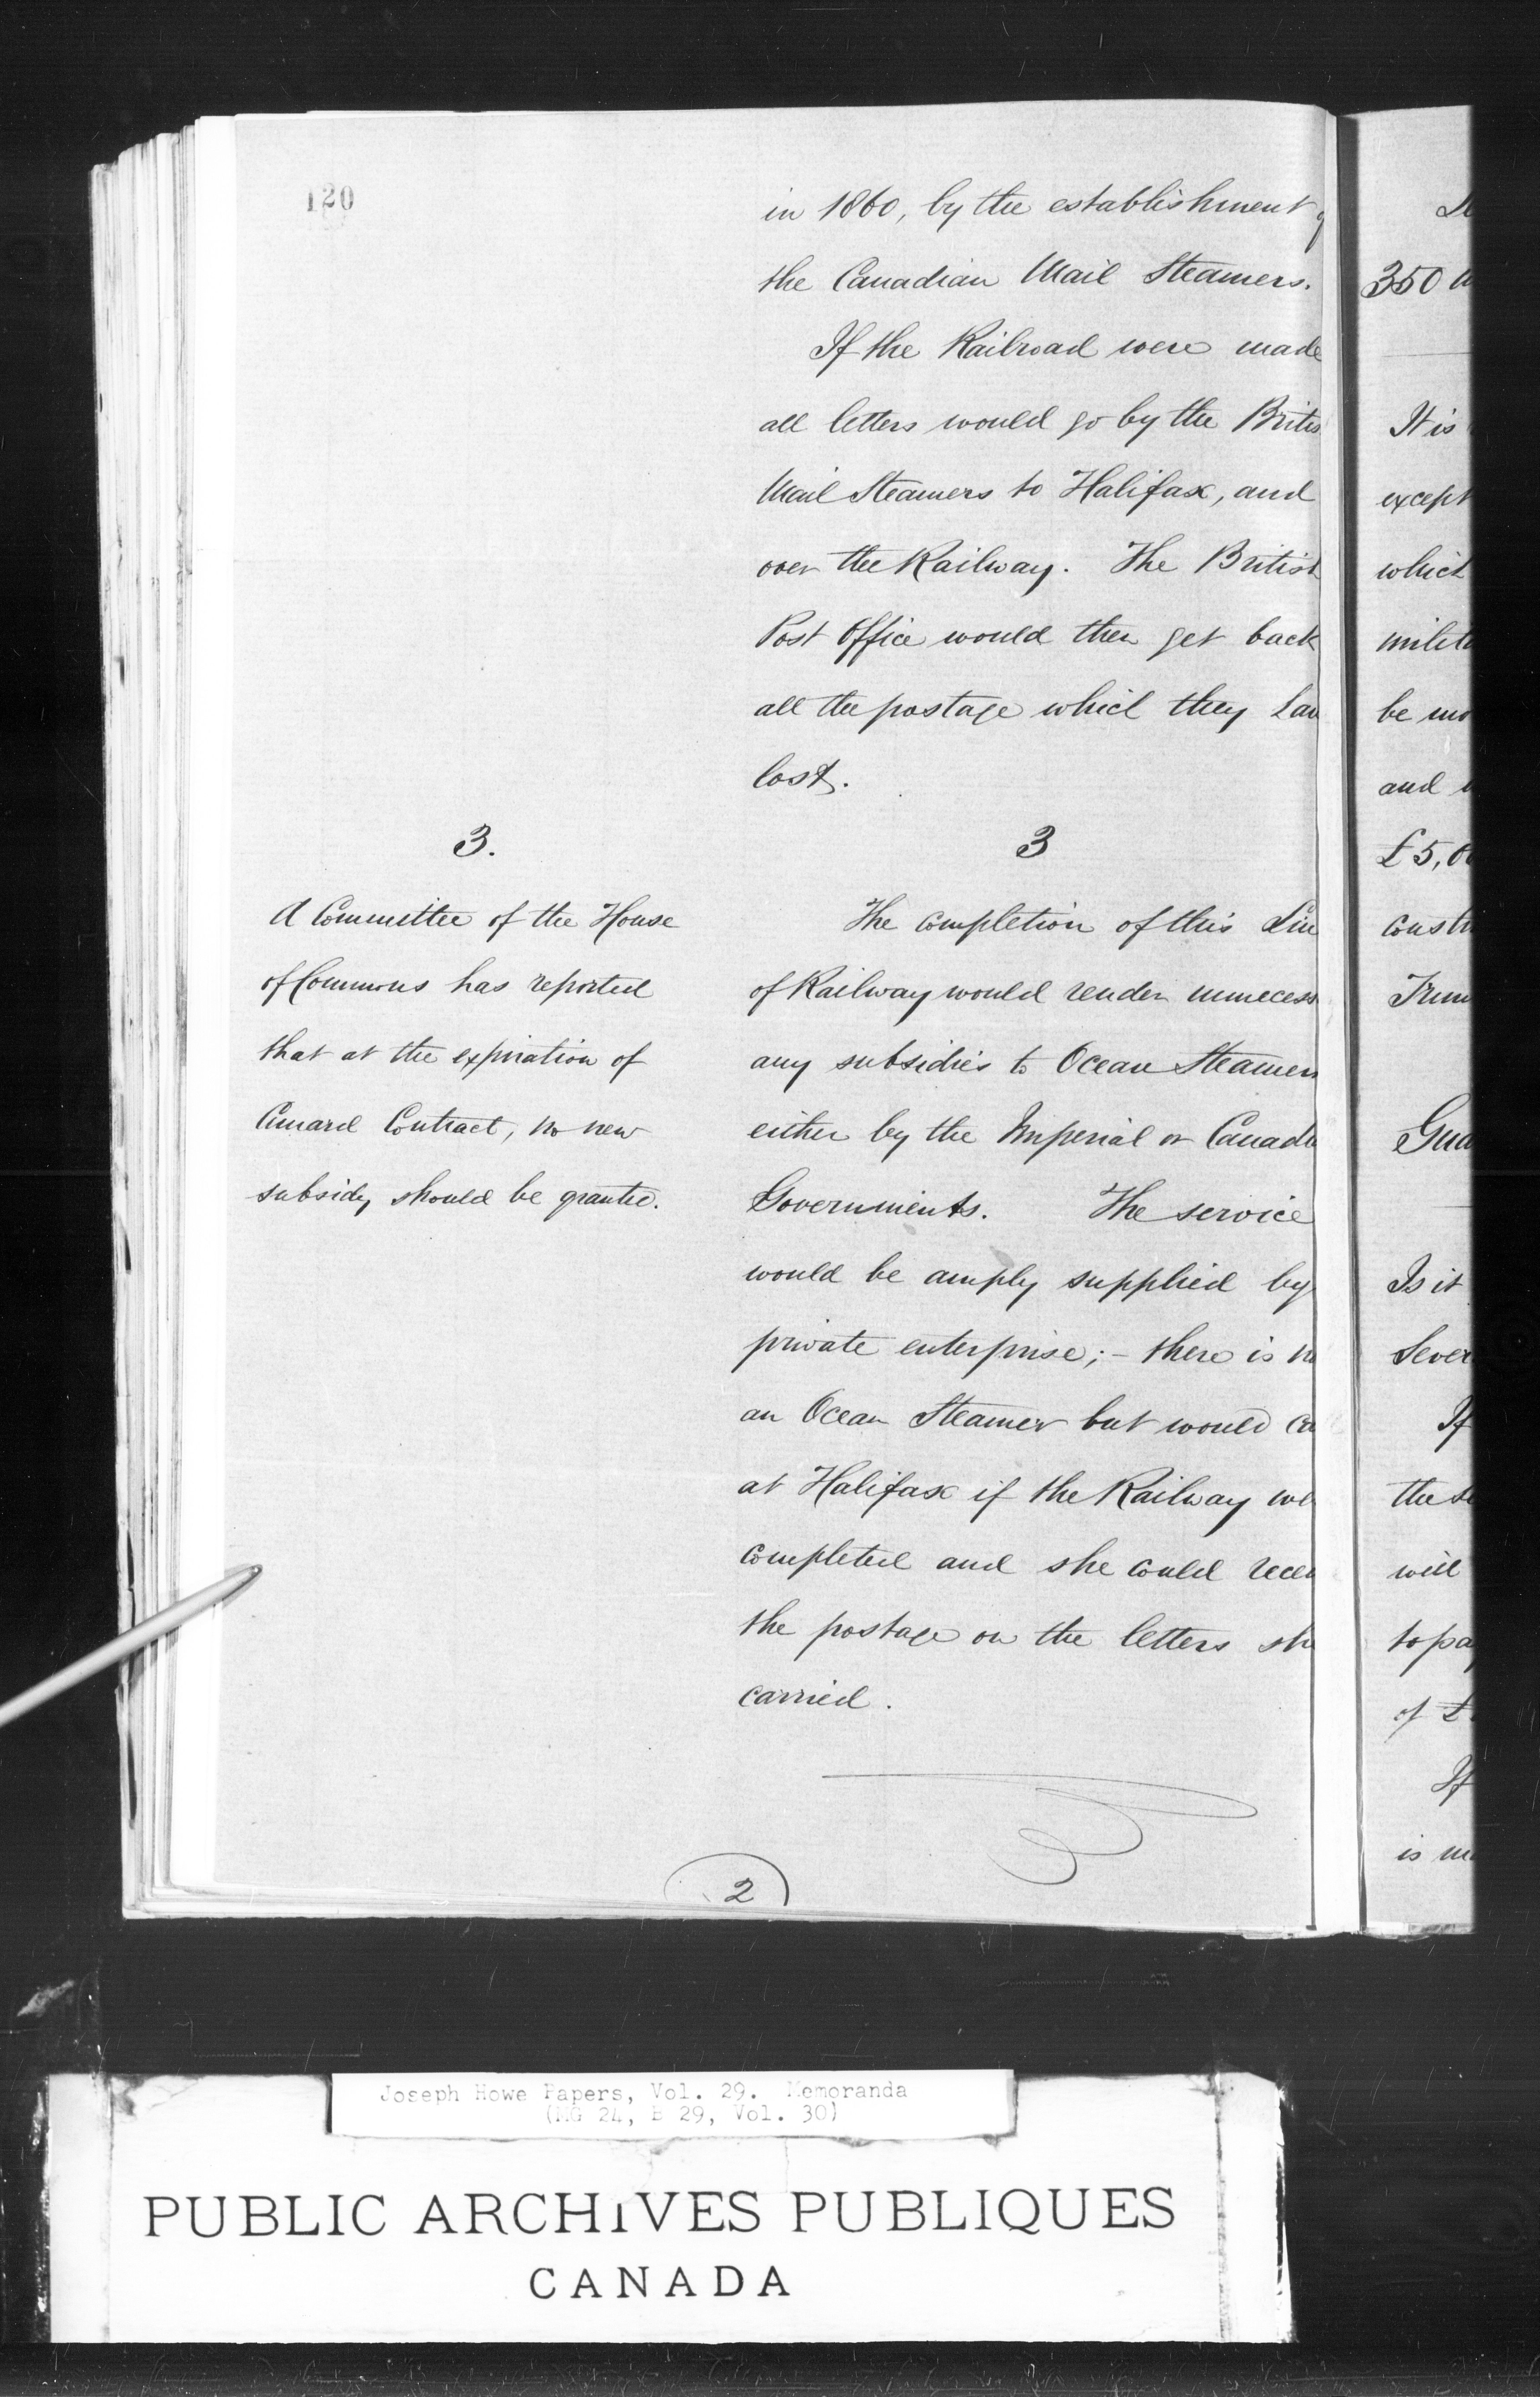 120
in 1860, by the establishment
the Canadian Mail Steamers.
If the Railroad were made
all letters would go by the Britis
Mail Steamers to Halifax, and
over the Railway. The British
Post Office would then get back
all the postage which they
lost.
3.
A Committee of the House
of Commons has reported
that at the expiration of
Cunard Contract, no new
subsidy should be granted.
3
The completion of this Line
of Railway would render unnecess
any subsidies to Ocean Steamers
either by the Imperial or Canadi
Governments. The service
would be amply supplied by
private enterprise; - there is
an Ocean Steamer but would ca
at Halifax if the Railway we
completed and she could recei
the postage on the letters sh
carried.
2
350
It is
except
which
milit
be mo
and
£5,0
constr
Trun
Gua
Is it
Sever
If
the
will
to pa
of £
If
is
Joseph Howe Papers, Vol. 29. Memoranda
(MG 24, B 29, Vol. 30)
PUBLIC ARCHIVES PUBLIQUES
CANADA